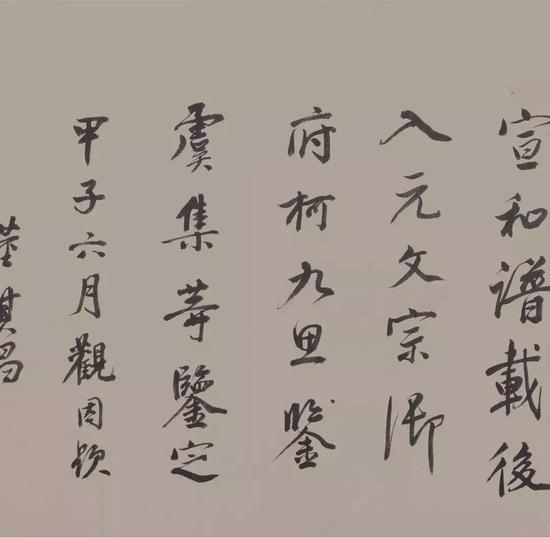 宣和譜載後
入元文宗御
府柯九思鑒
虞集等鑒定
甲子六月觀因題
董其昌